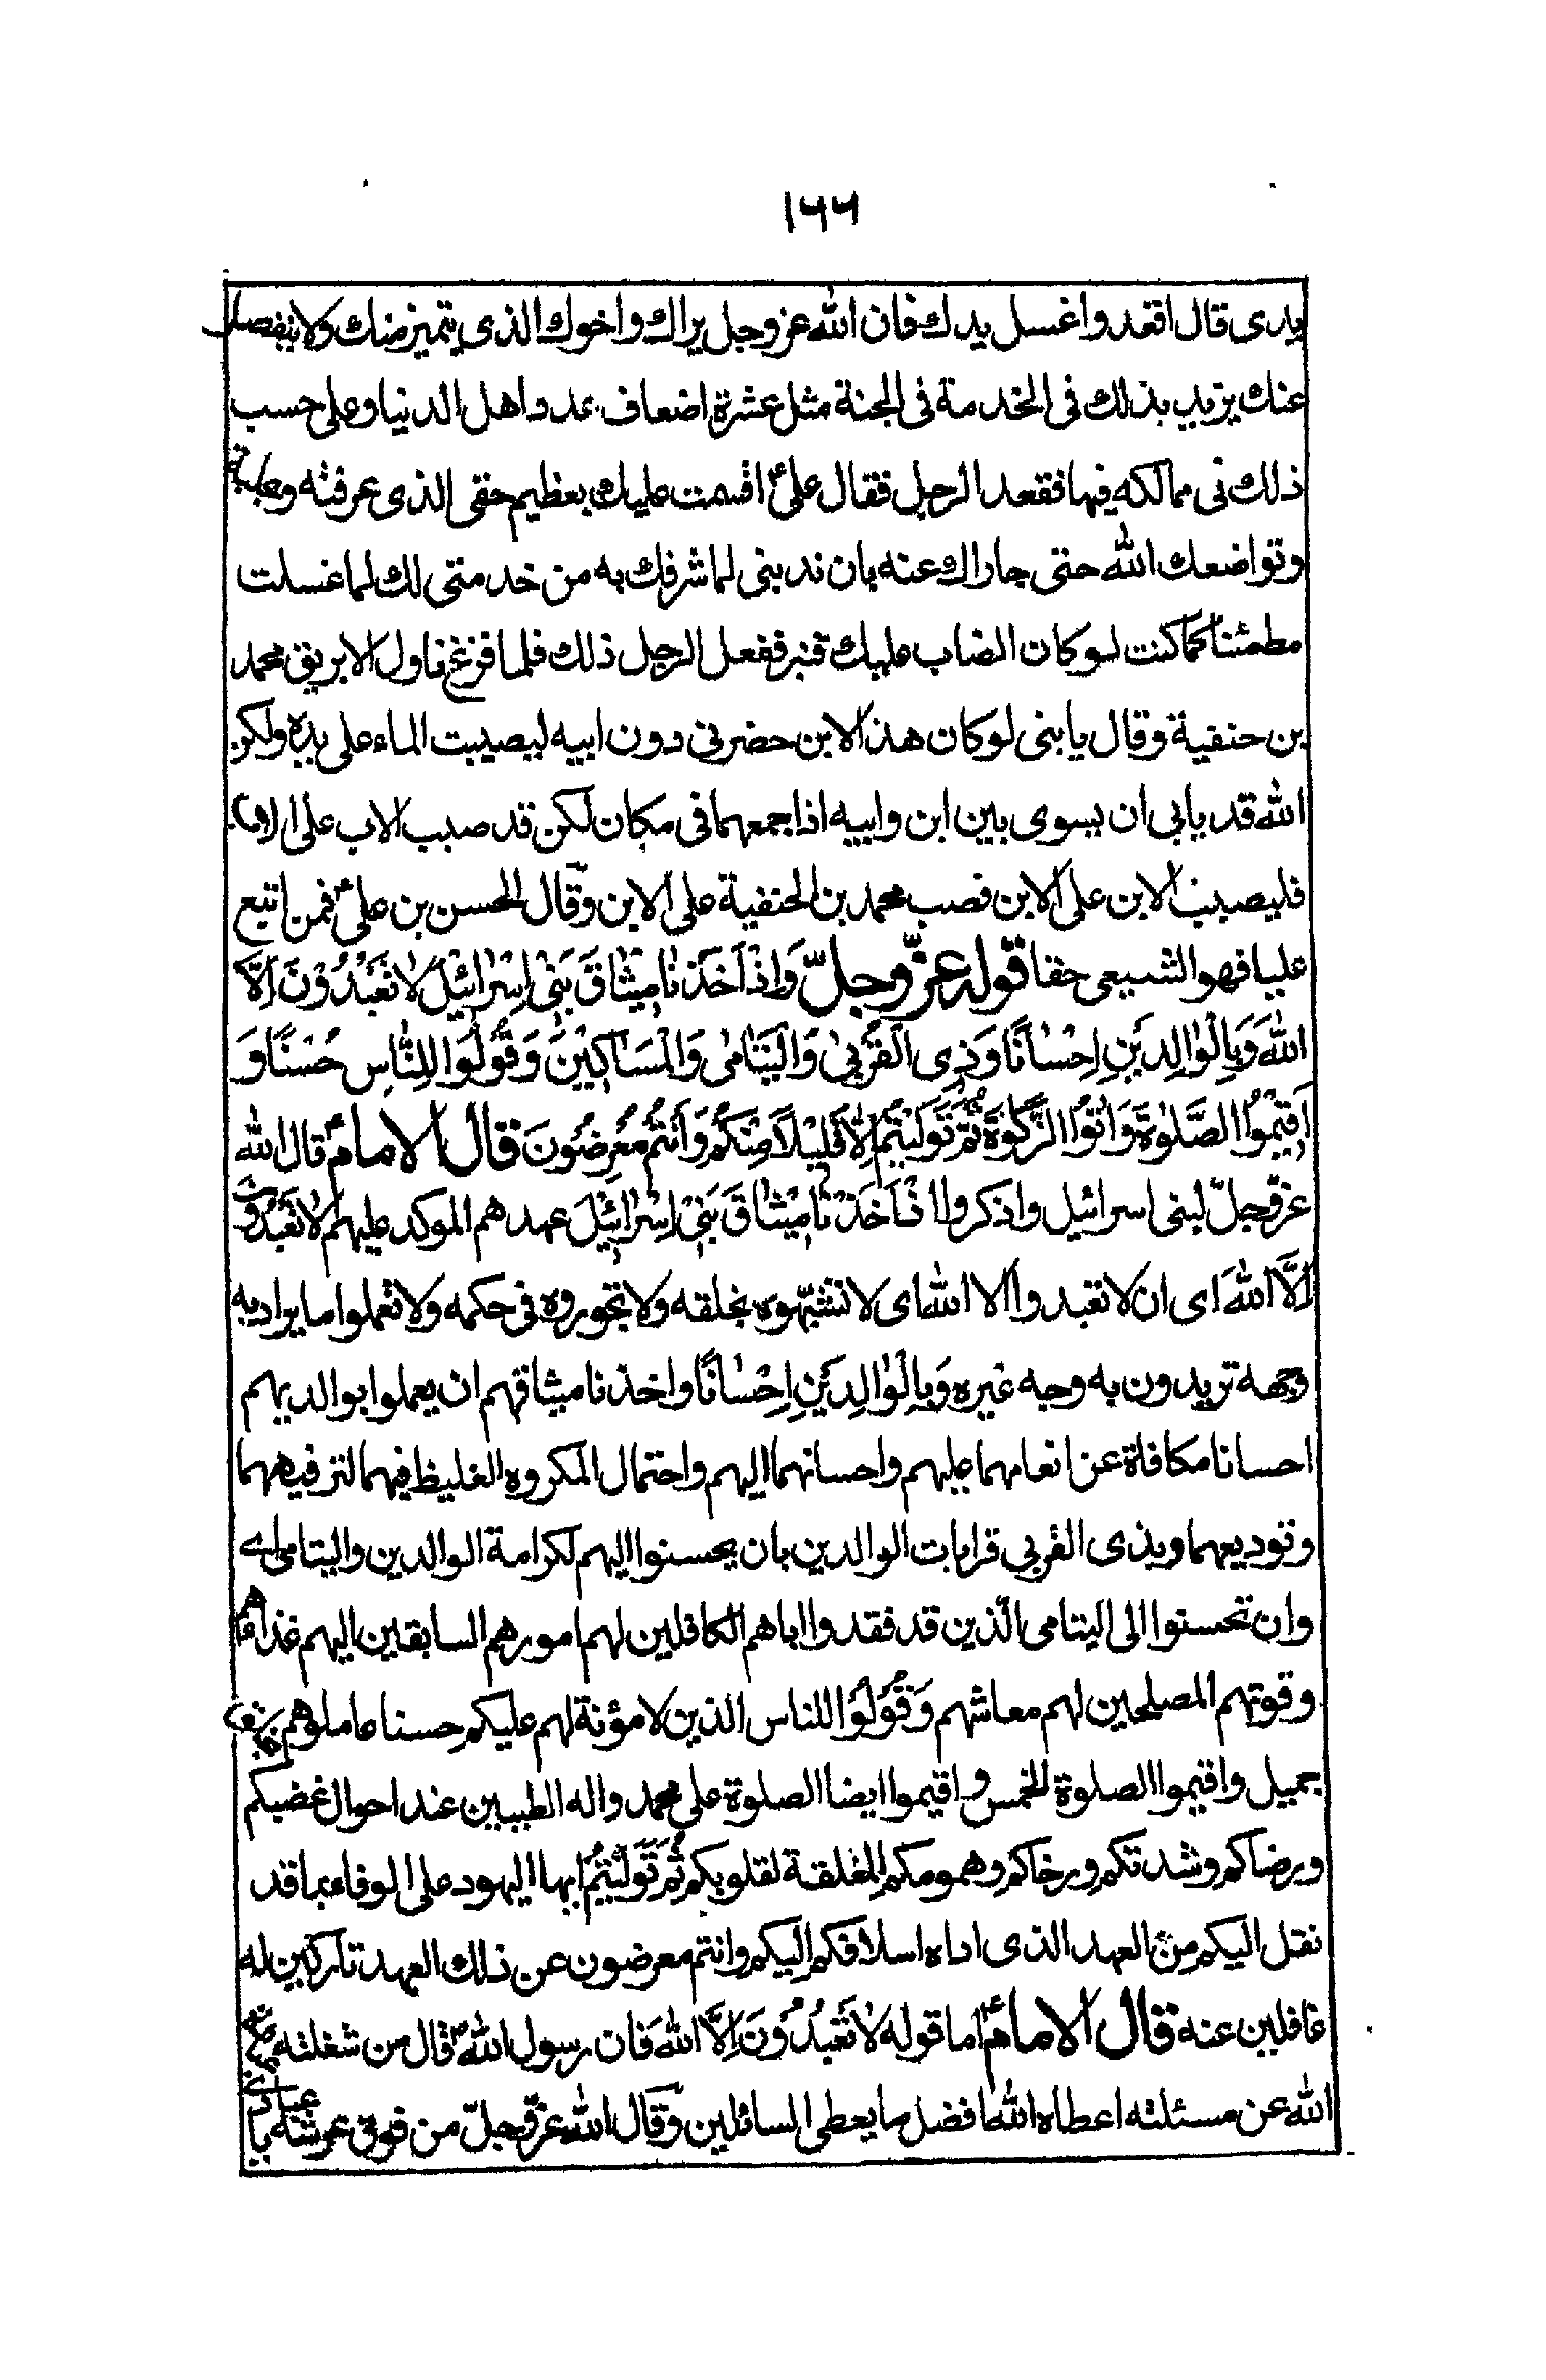 ١٦٦
يدى قال اقعد واغسل يدك فان الله عز وجل يراك واخوك الذى يتميز منك ولا ينفصل
عنك يزيد بذلك فى الخدمة فى الجنة مثل عشرة اضعاف عدد اهل الدنيا وعلى حسب
ذلك فى ممالكه فيها فقعد الرجل فقال علىؑ اقسمت عليك بعظيم حقى الذى عرفته
وتواضعك الله حتى جاراك عنه بان ندبنى لما شرفك به من خدمتى لك لما غسلت
مطمئنا كما كنت لو كان الصاب عليك قنبر ففعل الرجل ذلك فلما فرغ ناول الابريق محمد
بن حنفية وقال يا بنى لو كان هذا الابن حضرنى دون ابيه لصببت الماء على يده ولكن
الله قد يابى ان يسوى بين ابن وابيه اذا جمعهما فى مكان لكن قد صبب الاب على الاب
فليصبب الابن على الابن فصب محمد بن الحنفية على الابن وقال الحسن بن علىؑ فمن اتبع
عليا فهو الشيعى حقا قوله عزّ وجلّ وَاِذْ اَخَذْنَا مِيْثَاقَ بَنِىْ اِسْرَائِيْلَ لَا تَعْبُدُوْنَ اِلَّا
اللهَ وَبِالْوَالِدَيْنِ اِحْسَانًا وَذِى الْقُرْبىٰ وَالْيَتَامىٰ وَالْمَسَاكِيْنَ وَقُوْلُوْا لِلنَّاسِ حُسْنًا وَ
اَقِيْمُوا الصَّلٰوةَ وَاٰتُوا الزَّكٰوةَ ثُمَّ تَوَلَّيْتُمْ اِلَّا قَلِيْلًا مِنْكُمْ وَاَنْتُمْ مُعْرِضُوْنَ قال الامامؑ قال الله
عزّ وجلّ لبنى اسرائيل واذكروا اذْ اَخَذْنَا مِيْثَاقَ بَنِىْ اِسْرَائِيْلَ عهدهم الموكد عليهم لَا تَعْبُدُوْنَ
اِلَّا اللهَ اى ان لا تعبدوا الا الله اى لا تشبّهوه بخلقه ولا تجوروه فى حكمه ولا تعملوا ما يراد به
وجهه تريدون به وجه غيره وَبِالْوَالِدَيْنِ اِحْسَانًا واخذنا ميثاقهم ان يعملوا بوالديهم
احسانا مكافاة عن انعامهما عليهم واحسانهما اليهم واحتمال المكروه الغليظ فيهما لترفيههما
وتوديعهما وبذى القربى قرابات الوالدين بان يحسنوا اليهم لكرامة الوالدين واليتامى اے
وان تحسنوا الى اليتامى الّذين قد فقدوا اباهم الكافلين لهم امورهم السابقين اليهم غذاهم
وقوتهم المصلحين لهم معاشهم وَقُوْلُوْا للناس الذين لا مؤنة لهم عليكم حسنا عاملوهم بخلق
جميل واقيموا الصلوة الخمس واقيموا ايضا الصلوة على محمد واله الطيبين عند احوال غضبكم
ورضاكم وشدتكم ورخاكم وهمومكم المغلقة لقلوبكم ثُمَّ تَوَلَّيْتُمْ ايها اليهود على الوفاء بما قد
نقل اليكم من العهد الذى اداه اسلافكم اليكم وانتم معرضون عن ذلك العهد تاركين له
غافلين عنه قال الامامؑ اما قوله لَا تَعْبُدُوْنَ اِلَّا اللهَ فان رسول اللهؐ قال من شغلته
الله عن مسئلته اعطاه الله افضل ما يعطى السائلين وقال الله عزّ وجلّ من فوق عرشه يا عبادى